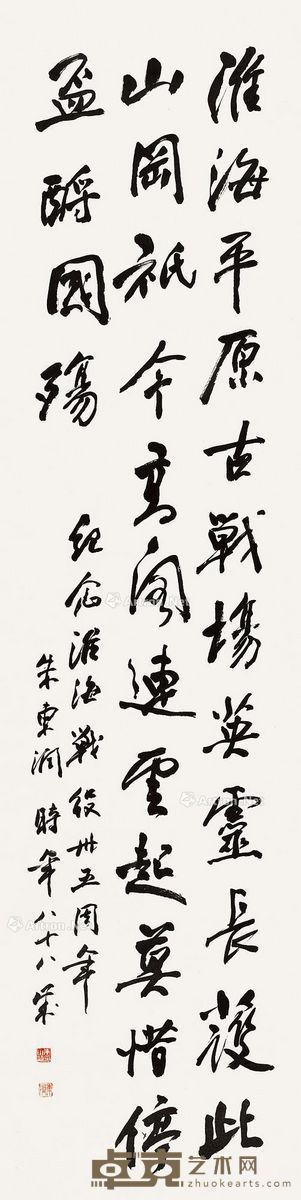 淮海平原古戰場英靈長護此
山岡祇今高閣連雲起莫惜停
盃酹國殤
紀念淮海戰役卅五周年
朱東潤時年八十八歲
卓克艺术网
zhuokearts.com